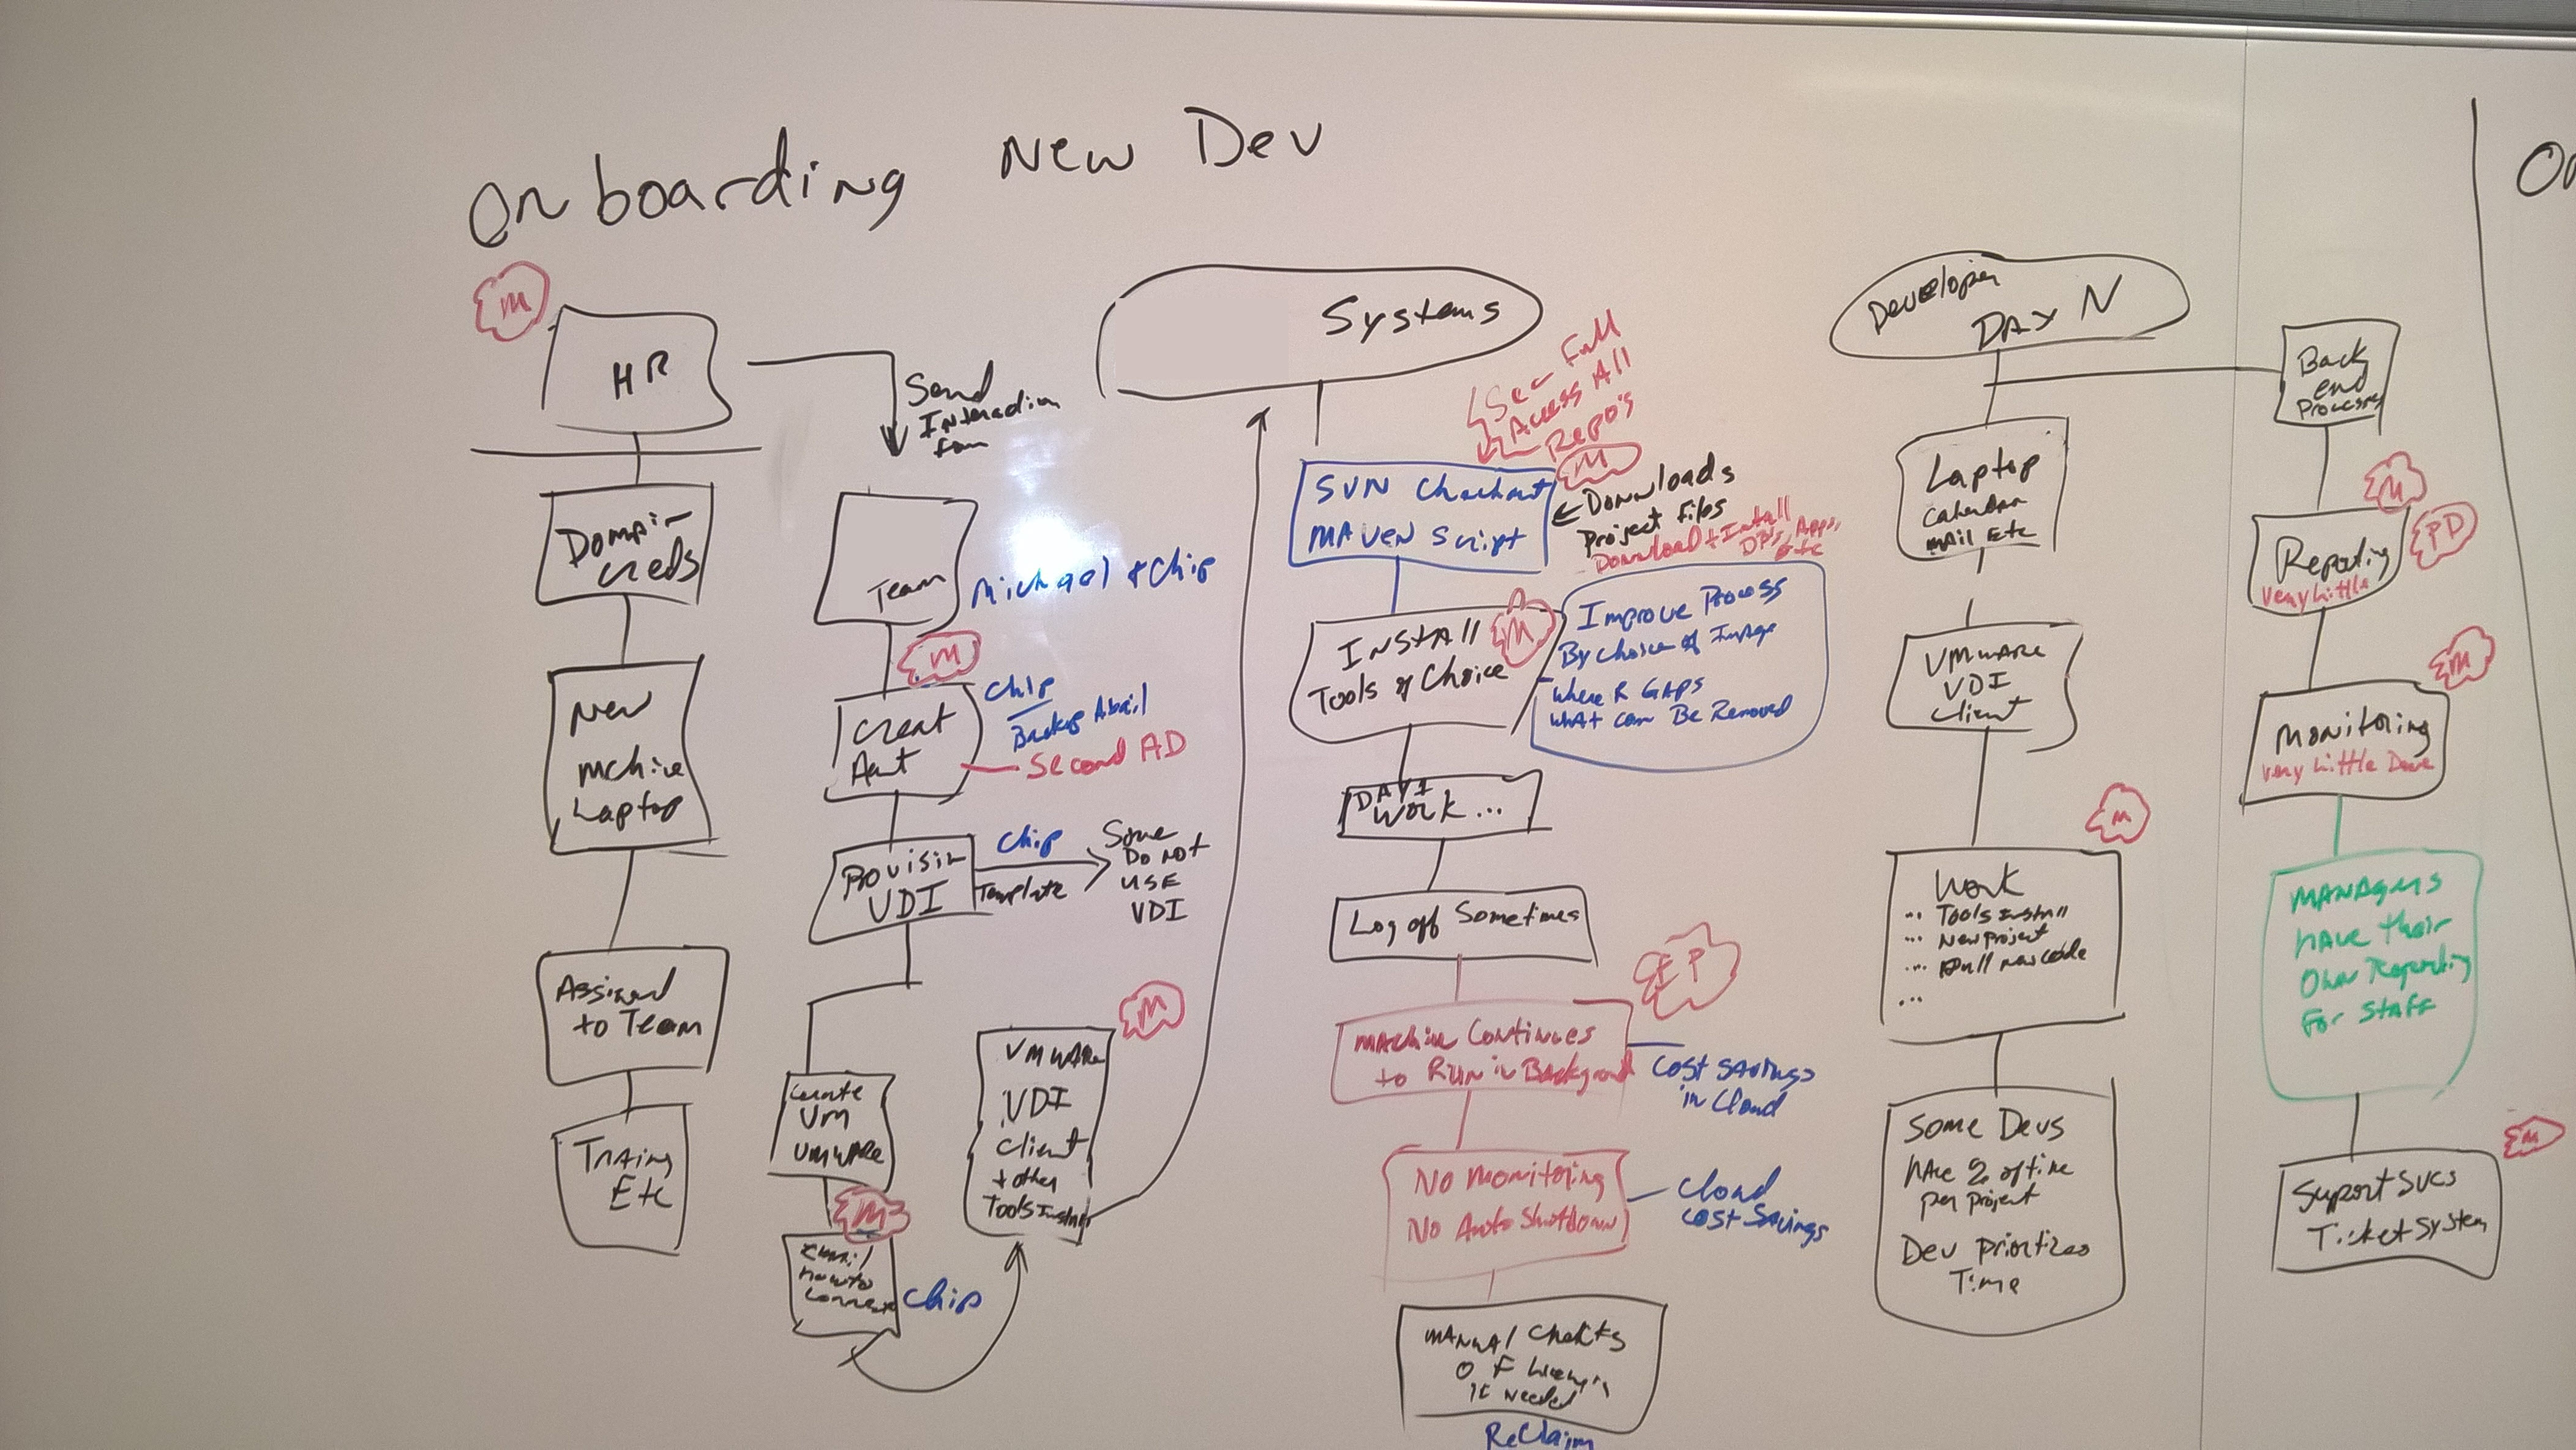 Onboarding New Dev
On
M
HR
Send
Domain
Creds
New
Mchine
Laptop
Assigned
to Team
Etc
Team
Michael & Chip
M
Creat
Acnt
Chip
Backup Abail
Second AD
Provisin
VDI
Chip
Template
Some
Do Not
USE
VDI
Create
VM
VMWARE
M
Email
How to
Connect
Chip
M
VMWARE
VDI
Client
+ other
Tools Install
Systems
Full
Access All
Repo's
M
SVN Checkout
MAVEN Script
Downloads
Project Files
Download + Install
Apps,
Etc
INSTAll
Tools of Choice
M
Improve Process
By Choice of Image
Where R GAPS
What can Be Removed
DAY 1
Work ...
Log off Sometimes
EP
Machine Continues
to Run in Background
Cost Savings
in Cloud
No Monitoring
No Auto Shutdown
Cloud
Cost Savings
Manual Checks
OF
If Needed
ReClaim
Developer
DAY N
Laptop
Calendar
Mail Etc
VMWARE
VDI
Client
M
Work
... Tools Install
... New Project
... Pull new code
...
Some Devs
Have % of time
per project
Dev prioritizes
Time
Back
end
Processes
M
PD
Reporting
Very Little
M
Monitoring
Very Little Done
Managers
have their
Own Reporting
For Staff
M
Support SVCS
Ticket System